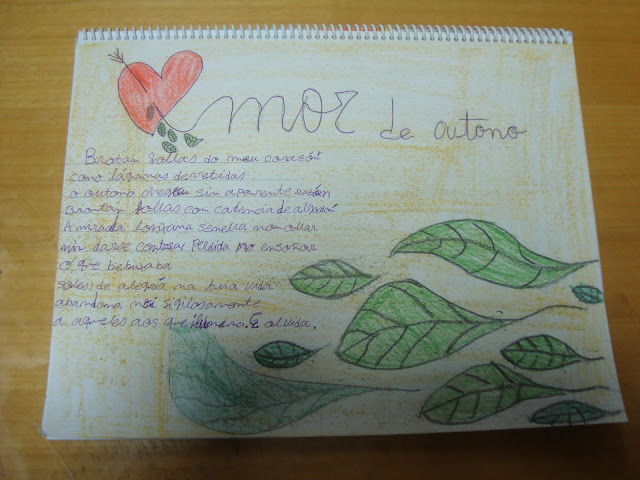 Amor de outono
Brotan follas do meu corazón
como lágrimas derretidas
o outono chegou sin aparente razón
Brotan follas con cadencia de
A mirada lontana semella non ollar
nin darse conta Perdida no ensoñar
O que debuxaba
soles de alegría na túa vida
abandona silgosamente
a aqueles aos que ilumina. E olvida.